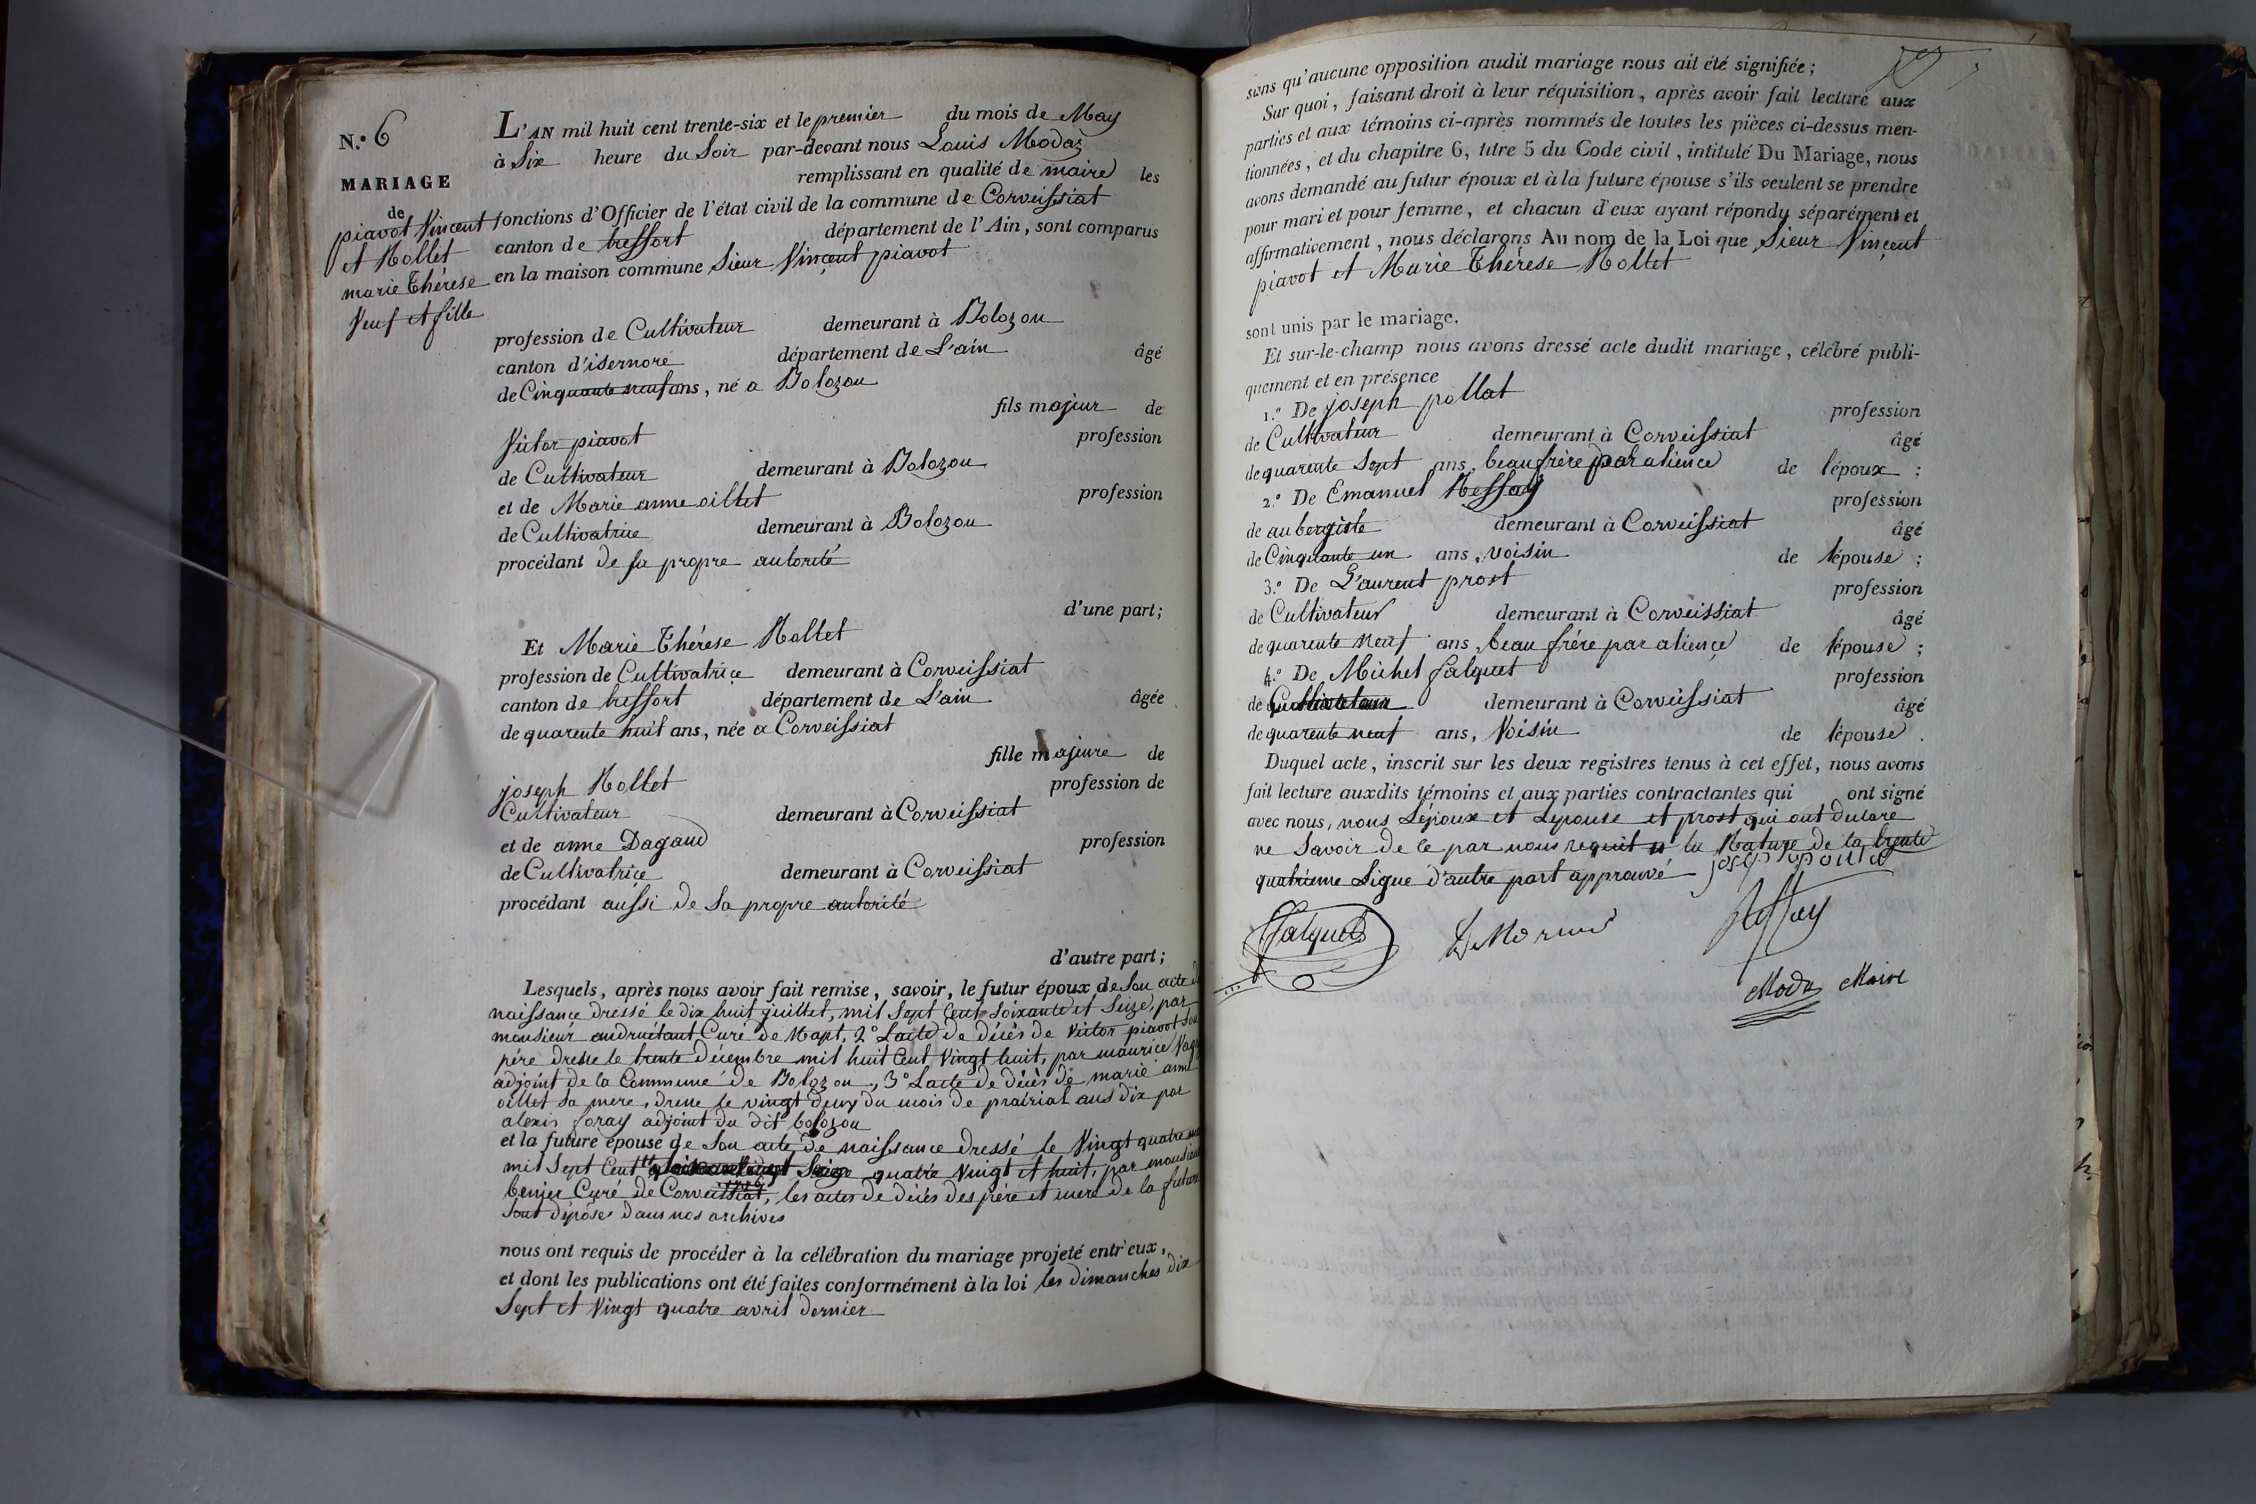 N.º 6
MARIAGE
de
piavot Vincent
et Hollet
marie Thérese
Veuf et fille
L'AN mil huit cent trente-six et le premier du mois de May
à Six heure du Soir par-devant nous Louis Modaz
remplissant en qualité de maire les
fonctions d'Officier de l'état civil de la commune de Corveissiat
canton de treffort département de l'Ain, sont comparus
en la maison commune Sieur Vinçent piavot
profession de Cultivateur demeurant à Bolozon
canton d'isernore département de L'ain âgé
de Cinquante neuf ans, né a Bolozon
fils majeur de
Victor piavot profession
de Cultivateur demeurant à Bolozon
et de Marie anne oillet profession
de Cultivatrice demeurant à Bolozon
procédant de sa propre autorité
d'une part;
Et Marie Thérese Hollet
profession de Cultivatriçe demeurant à Corveissiat
canton de treffort département de L'ain âgée
de quarente huit ans, née a Corveissiat
fille majeure de
joseph Hollet profession de
Cultivateur demeurant à Corveissiat
et de anne Dagaud profession
de Cultivatrice demeurant à Corveissiat
procédant aussi de Sa propre autorité
d'autre part;
Lesquels, après nous avoir fait remise, savoir, le futur époux de Son acte
naissance dressé le dix huit juillet, mil Sept Cent Soixante et Seize, par
monsieur Curé de Napt, 2º Lacte de décès de Victor piavot Son
pére dresse le trente décembre mil huit Cent Vingt huit, par maurice
adjoint de la Commune de Bolozon, 3º Lacte de décès de marie anne
oillet Sa mere, dresse le vingt deux du mois de prairial ans dix par
alexis foray adjoint du dit bolozon
et la future épouse de Son acte de naissance dressé le Vingt quatre
mil Sept Cent quatre Vingt et huit, par monsieur
Curé de Corveissiat, les actes de décès des pére et mere de la future
Sont déposés dans nos archives
nous ont requis de procéder à la célébration du mariage projeté entr'eux,
et dont les publications ont été faites conformément à la loi les dimanches dix
Sept et Vingt quatre avril dernier
sans qu'aucune opposition audit mariage nous ait été signifiée;
Sur quoi, faisant droit à leur réquisition, après avoir fait lecture aux
parties et aux témoins ci-après nommés de toutes les pièces ci-dessus men-
tionnées, et du chapitre 6, titre 5 du Code civil, intitulé Du Mariage, nous
avons demandé au futur époux et à la future épouse s'ils veulent se prendre
pour mari et pour femme, et chacun d'eux ayant répondu séparément et
affirmativement, nous déclarons Au nom de la Loi que Sieur Vinçent
piavot et Marie Thérese Hollet
sont unis par le mariage.
Et sur-le-champ nous avons dressé acte dudit mariage, célébré publi-
quement et en présence
1.º De joseph pollat profession
de Cultivateur demeurant à Corveissiat âgé
de quarente Sept ans, beau frère par alience de lépoux;
2.º De Emanuel Reffay profession
de aubergiste demeurant à Corveissiat âgé
de Cinquante un ans, voisin de lépouse;
3.º De Laurent prost profession
de Cultivateur demeurant à Corveissiat âgé
de quarente neuf ans, beau frére par aliençe de lépouse;
4.º De Michel falquet profession
de Cultivateur demeurant à Corveissiat âgé
de quarente neuf ans, Voisin de lépouse.
Duquel acte, inscrit sur les deux registres tenus à cet effet, nous avons
fait lecture auxdits témoins et aux parties contractantes qui ont signé
avec nous, nous Lépoux et Lépouse et prost qui ont déclaré
ne Savoir de ce par nous requit la Rature de la trente
quatrieme Ligne d'autre part approuvé
Falquet
Reffay
Modaz Maire